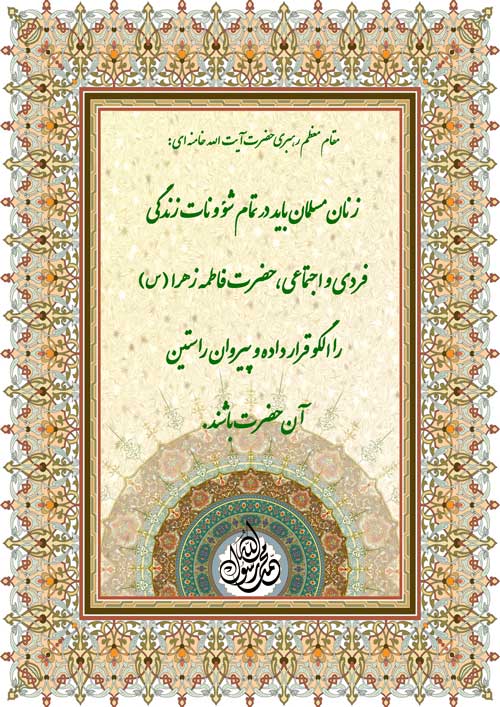 مقام معظم رهبری حضرت آیت الله خامنه ای:
زنان مسلمان باید در تمام شؤونات زندگی
فردی و اجتماعی، حضرت فاطمه زهرا (س)
را الگو قرار داده و پیروان راستین
آن حضرت باشند.
محمد رسول الله